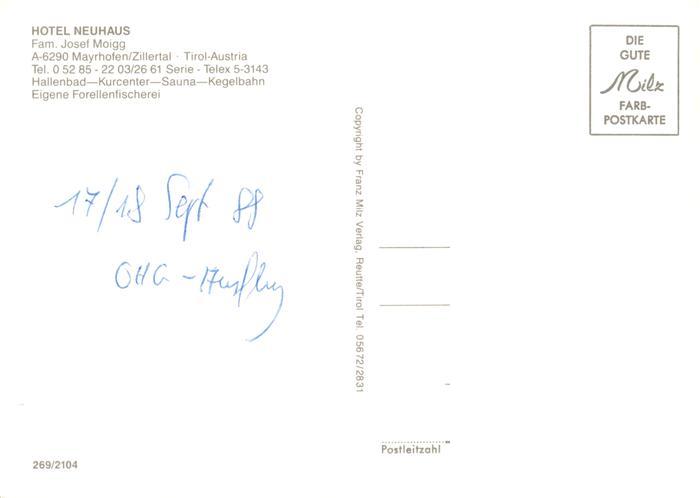 HOTEL NEUHAUS
Fam. Josef Moigg
A-6290 Mayrhofen/Zillertal · Tirol-Austria
Tel. 0 52 85 - 22 03/26 61 Serie - Telex 5-3143
Hallenbad—Kurcenter—Sauna—Kegelbahn
Eigene Forellenfischerei
17/18 Sept 88
OHG - Ausflug
269/2104
Copyright by Franz Milz Verlag, Reutte/Tirol Tel. 05672/2831
DIE
GUTE
Milz
FARB-
POSTKARTE
Postleitzahl